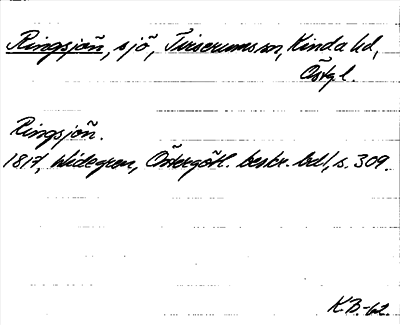 Ringsjön, sjö, Tirserums sn, Kinda hd,
Östgl.
Ringsjön.
1817, Widegren, Östergötl. beskr. bd 1, s. 309.
K.B.-62.